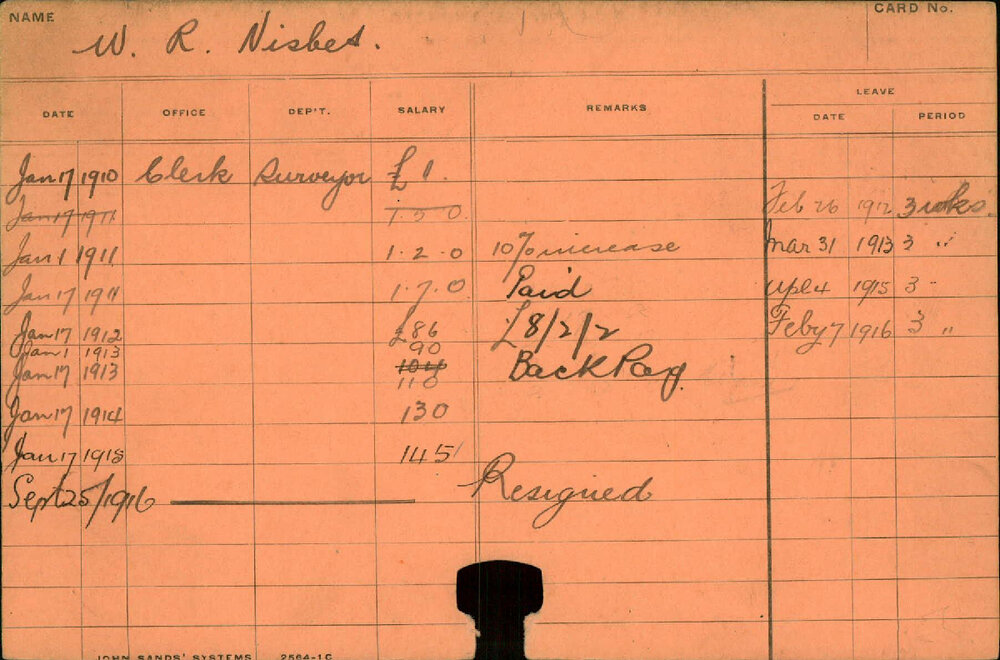 NAME
CARD No.
W. R. Nisbet.
DATE OFFICE DEP'T. SALARY REMARKS LEAVE
DATE PERIOD
Jan 17 1910 Clerk Surveyor £1.
Jan 17 1911 1.5.0 Feb 26 1912 3 wks.
Jan 1 1911 1.2.0 10% increase Mar 31 1913 3 "
Jan 17 1911 1.7.0 Paid 1915 3 "
Jan 17 1912 £86 £8/2/2 Feby 7 1916 3 "
Jan 1 1913 90
Jan 17 1913 104 Back Pay.
110
Jan 17 1914 130
Jan 17 1915 145
Sept 25/1916 Resigned
JOHN SANDS' SYSTEMS 2564-1C